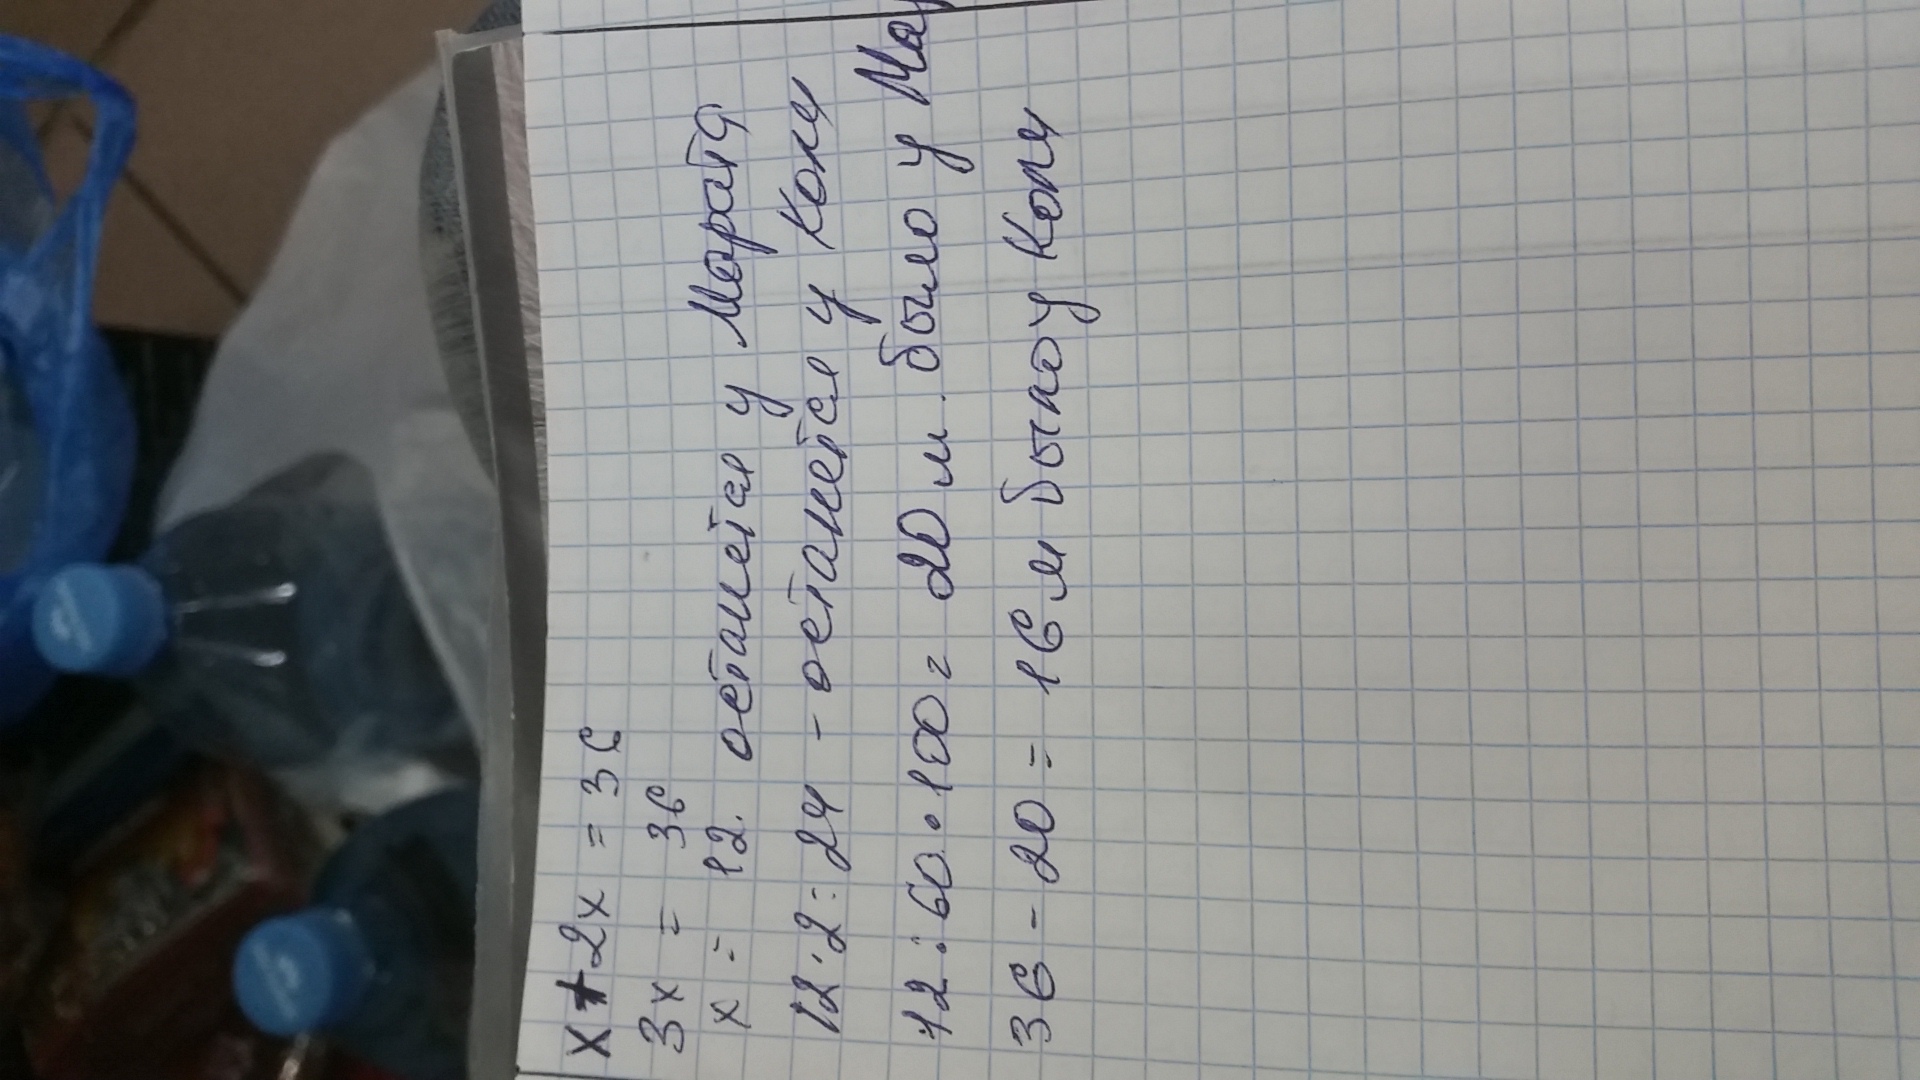 x+2x = 36
3x = 36
x = 12. останется у Марата
12·2=24 - останется у Коли
12:60·100= 20 м. было у Ма
36-20= 16 м было у Коли